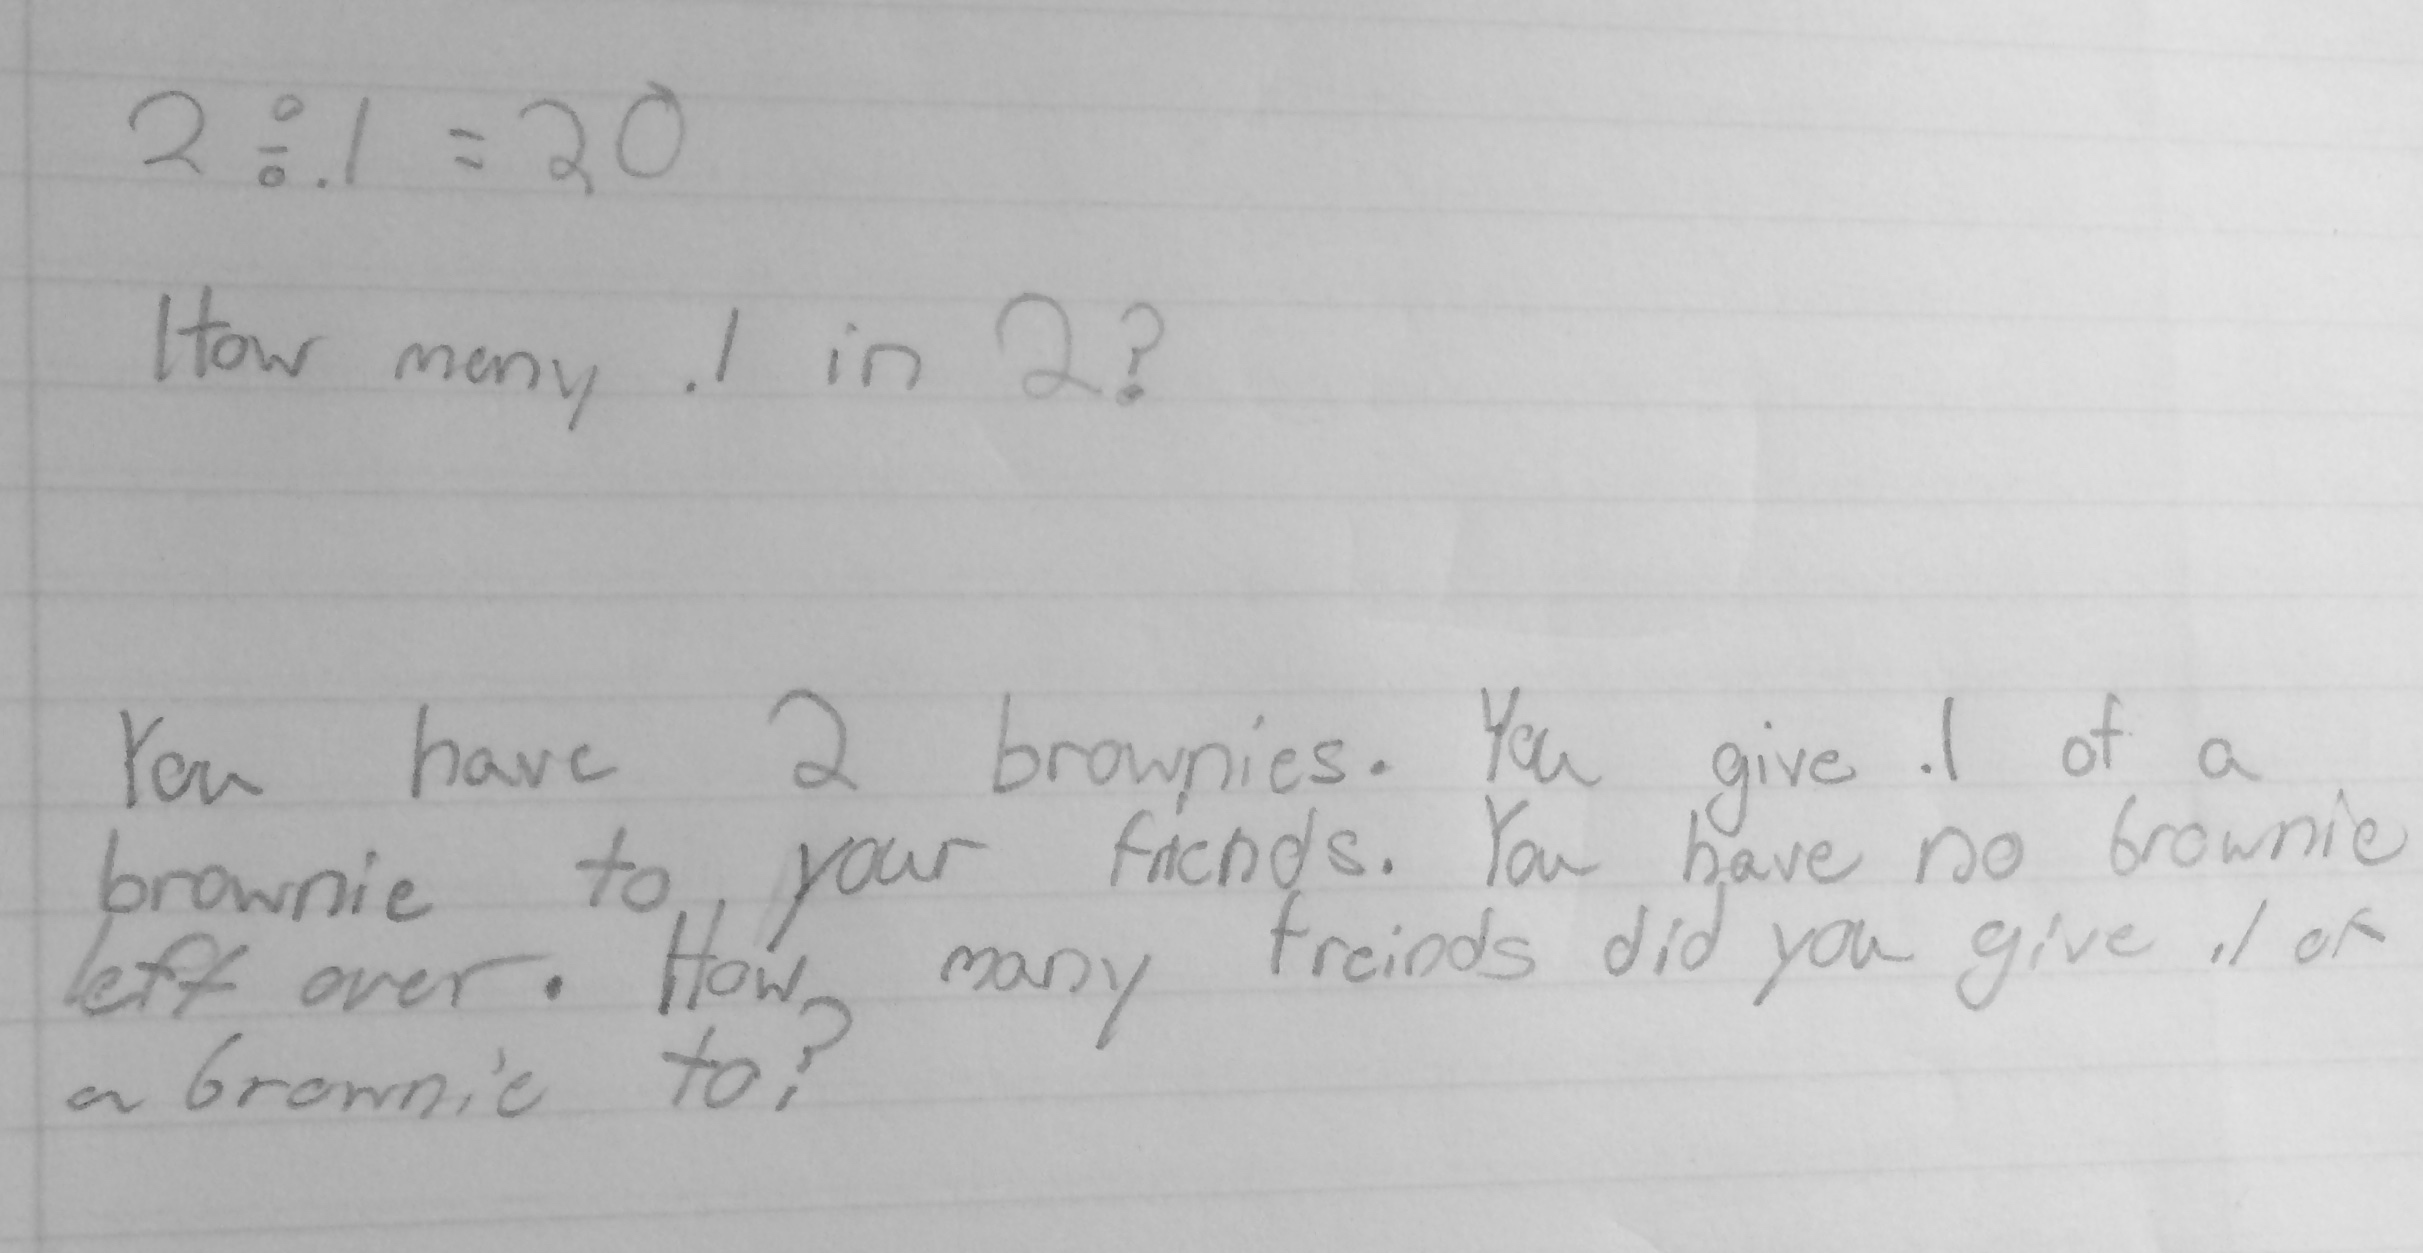 2 ÷ .1 = 20
How many .1 in 2?
You have 2 brownies. You give .1 of a
brownie to your friends. You have no brownie
left over. How many freinds did you give .1 of
a brownie to?